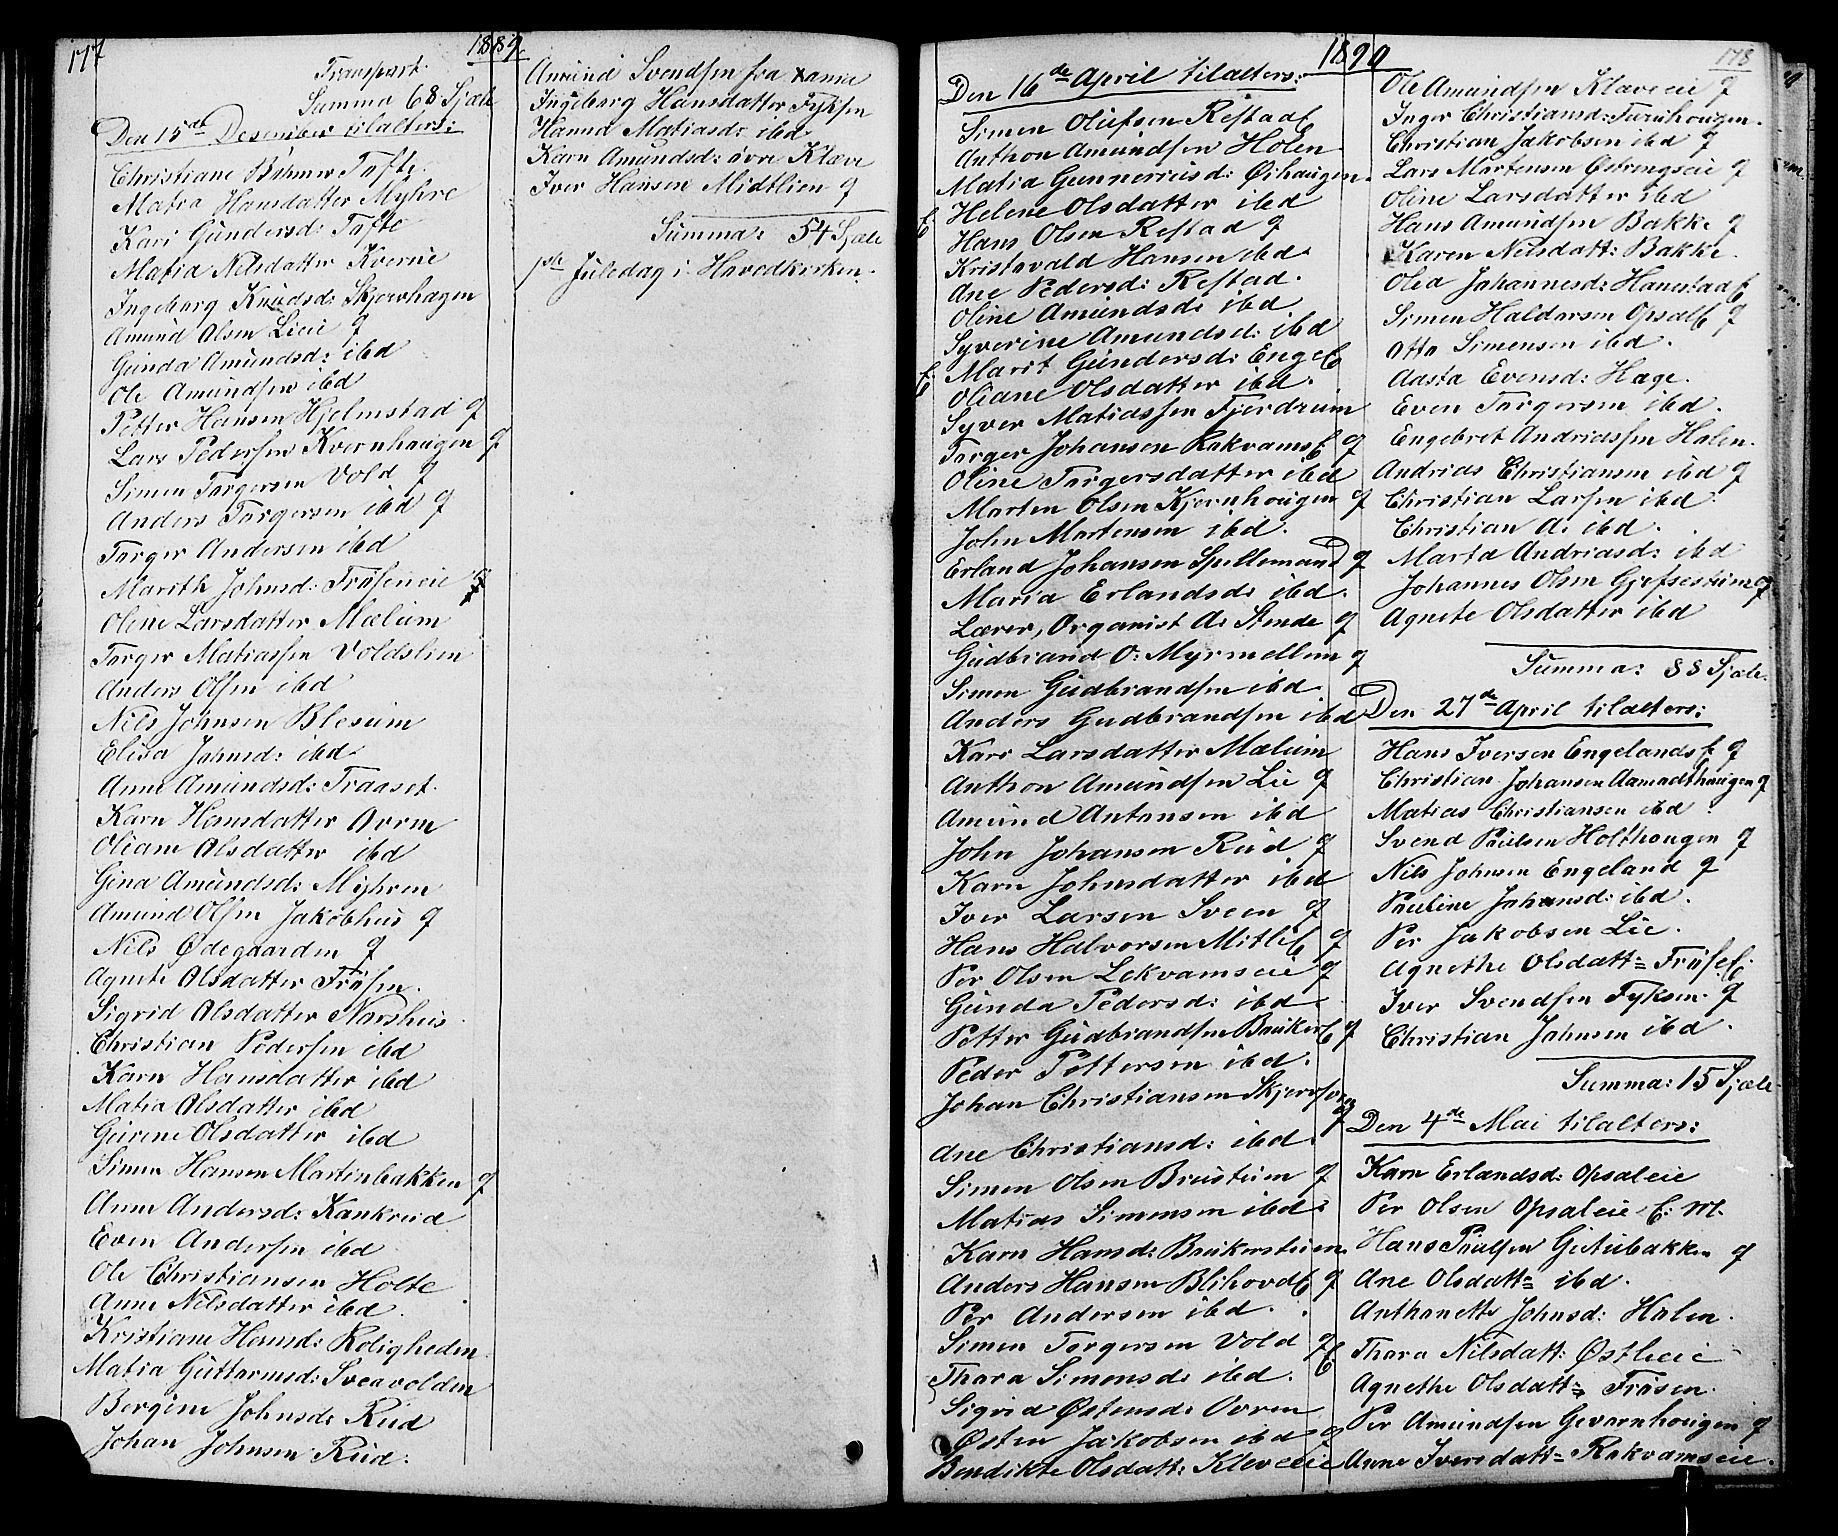 177
1889
Transport.
Summa 68 Sjæle
Den 15de Desember tilalters:
Christiane Bihmer Tofte.
Matea Hansdatter Myhre
Kari Gundersd: Tofte
Matia Nilsdatter Kverne
Ingeborg Knudsd: Skjervhagen
Amund Olsen Lieie g
Gunda Amundsd: ibd
Ole Amundsen ibd
Petter Hansen Hjelmstad g
Lars Pedersen Kvernhaugen g
Simen Torgersen Vold g
Anders Torgersen ibd g
Torger Andersen ibd
Marith Johnsd: Frøseneie
Oline Larsdatter Mælum
Torger Matiassen Voldslien
Anders Olsen ibd
Nils Johnsen Blesum
Elisa Johnsd: ibd
Anne Amundsd: Traaset.
Karn Hansdatter Ovrn
Oliane Olsdatter ibd
Gina Amundsd: Myhren
Amund Olsen Jakobhus g
Nils Ødegaarden g
Agnete Olsdatter Frøsen.
Sigrid Olsdatter Norshus
Christian Pedersen ibd
Karn Hansdatter ibd
Matia Olsdatter ibd
Gurine Olsdatter ibd
Simen Hansen Martinbakken g
Anne Andersd: Kankrud
Even Andersen ibd
Ole Christiansen Holte
Anne Nilsdatter ibd.
Kristiane Hansd: Roligheden
Matia Guttormsd: Sveavolden
Borgine Johnsd: Rud
Johan Johnsen Rud:
Amund Svendsen fra
Ingeborg Hansdatter Fyksen
Hanna Matiasd: ibd
Karn Amundsd: øvre Klæve
Iver Hansen Midtlien g
Summa: 54 Sjæle
1ste Juledag i Hovedkirken.
1890
178
Den 16de April tilalters:
Simen Olufsen Refsad
Anthon Amundsen Holen
Matia Gunneriusd: Ørhaugen.
Helene Olsdatter ibd
Hans Olsen Refstad g
Kristovald Hansen ibd
Ane Pedersd: Refstad.
Oline Amundsd: ibd
Syverine Amundsd: ibd
Marit Gundersd: Enge
Oliane Olsdatter ibd.
Syver Matiassen Fjerdrum
Torger Johansen Rakvams g
Oline Torgersdatter ibd
Marten Olsen Kjernhougen g
John Martensen ibd.
Erland Johansen Spellemand g
Maria Erlandsd: ibd.
Lærer, Organist A: Stende g
Gudbrand O: Myrmellem g
Simen Gudbrandsen ibd
Anders Gudbrandsen ibd
Kari Larsdatter Mælum
Anthon Amundsen Lie g
Amund Antonsen ibd
John Johansen Rud g
Karn Johnsdatter ibd
Iver Larsen Sveen g
Hans Halvorsen Mitli g
Per Olsen Lekvamseie g
Gunda Pedersd: ibd
Petter Gudbrandsen Bruker g
Peder Pettersen ibd.
Johan Christiansen Skjervsven g
Ane Christiansd: ibd.
Simen Olsen Brustuen g
Matias Simensen ibd:
Karn Hansd: Brukerstuen.
Anders Hansen Blihovd g
Per Andersen ibd.
Simen Torgersen Vold g
Thora Simensd: ibd.
Sigrid Østensd: Ovren
Østen Jakobsen ibd g
Bendikte Olsdatt: Kleveeie
Ole Amundsen Klæveeie g
Inger Christiansd: Turihougen.
Christian Jakobsen ibd g
Lars Martensen Øvrengseie g
Oline Larsdatter ibd
Hans Amundsen Bakke g
Karen Nilsdatt: Bakke.
Olea Johannesd: Hanestad
Simen Haldorsen Opsal g
Otto Simensen ibd.
Aasta Evensd: Hage.
Even Torgersen ibd.
Engebret Andriassen Holen.
Andrias Christiansen ibd g
Christian Larsen ibd.
Christian A: ibd.
Marta Andriasd: ibd
Johannes Olsen Gjefsestuen g
Agnete Olsdatter ibd
Summa: 88 Sjæle.
Den 27de April tilalters:
Hans Iversen Engelands g
Christian Johansen Aamodthaugen g
Matias Christiansen ibd.
Svend Paulsen Holthougen g
Nils Johnsen Engeland g
Pauline Johansd: ibd.
Per Jakobsen Lie.
Agnethe Olsdatt= Frøse
Iver Svendsen Fyksen. g
Christian Johnsen ibd.
Summa: 15 Sjæle
Den 4de Mai tilalters:
Karn Erlandsd: Opsaleie
Per Olsen Opsaleie E: M.
Hans Paulsen Gutubakken g
Ane Olsdatt= ibd.
Anthonette Johnsd: Holen.
Thora Nilsdatt: Østlieie
Agnethe Olsdatt= Frøsen.
Per Amundsen Gevarnhougen g
Anne Iversdatt= Rakvamseie.